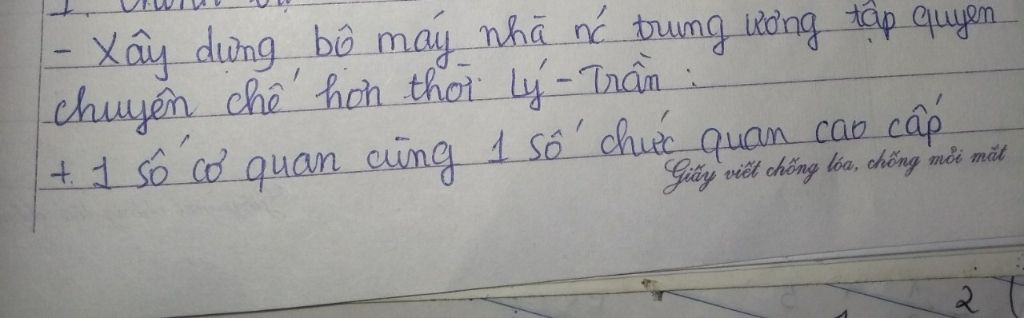 - Xây dựng bộ máy nhà nć trung ương tập quyền
chuyên chế hơn thời Lý - Trần :
+ 1 số cơ quan cùng 1 số chức quan cao cấp
Giấy viết chống lóa, chống mỏi mắt
2